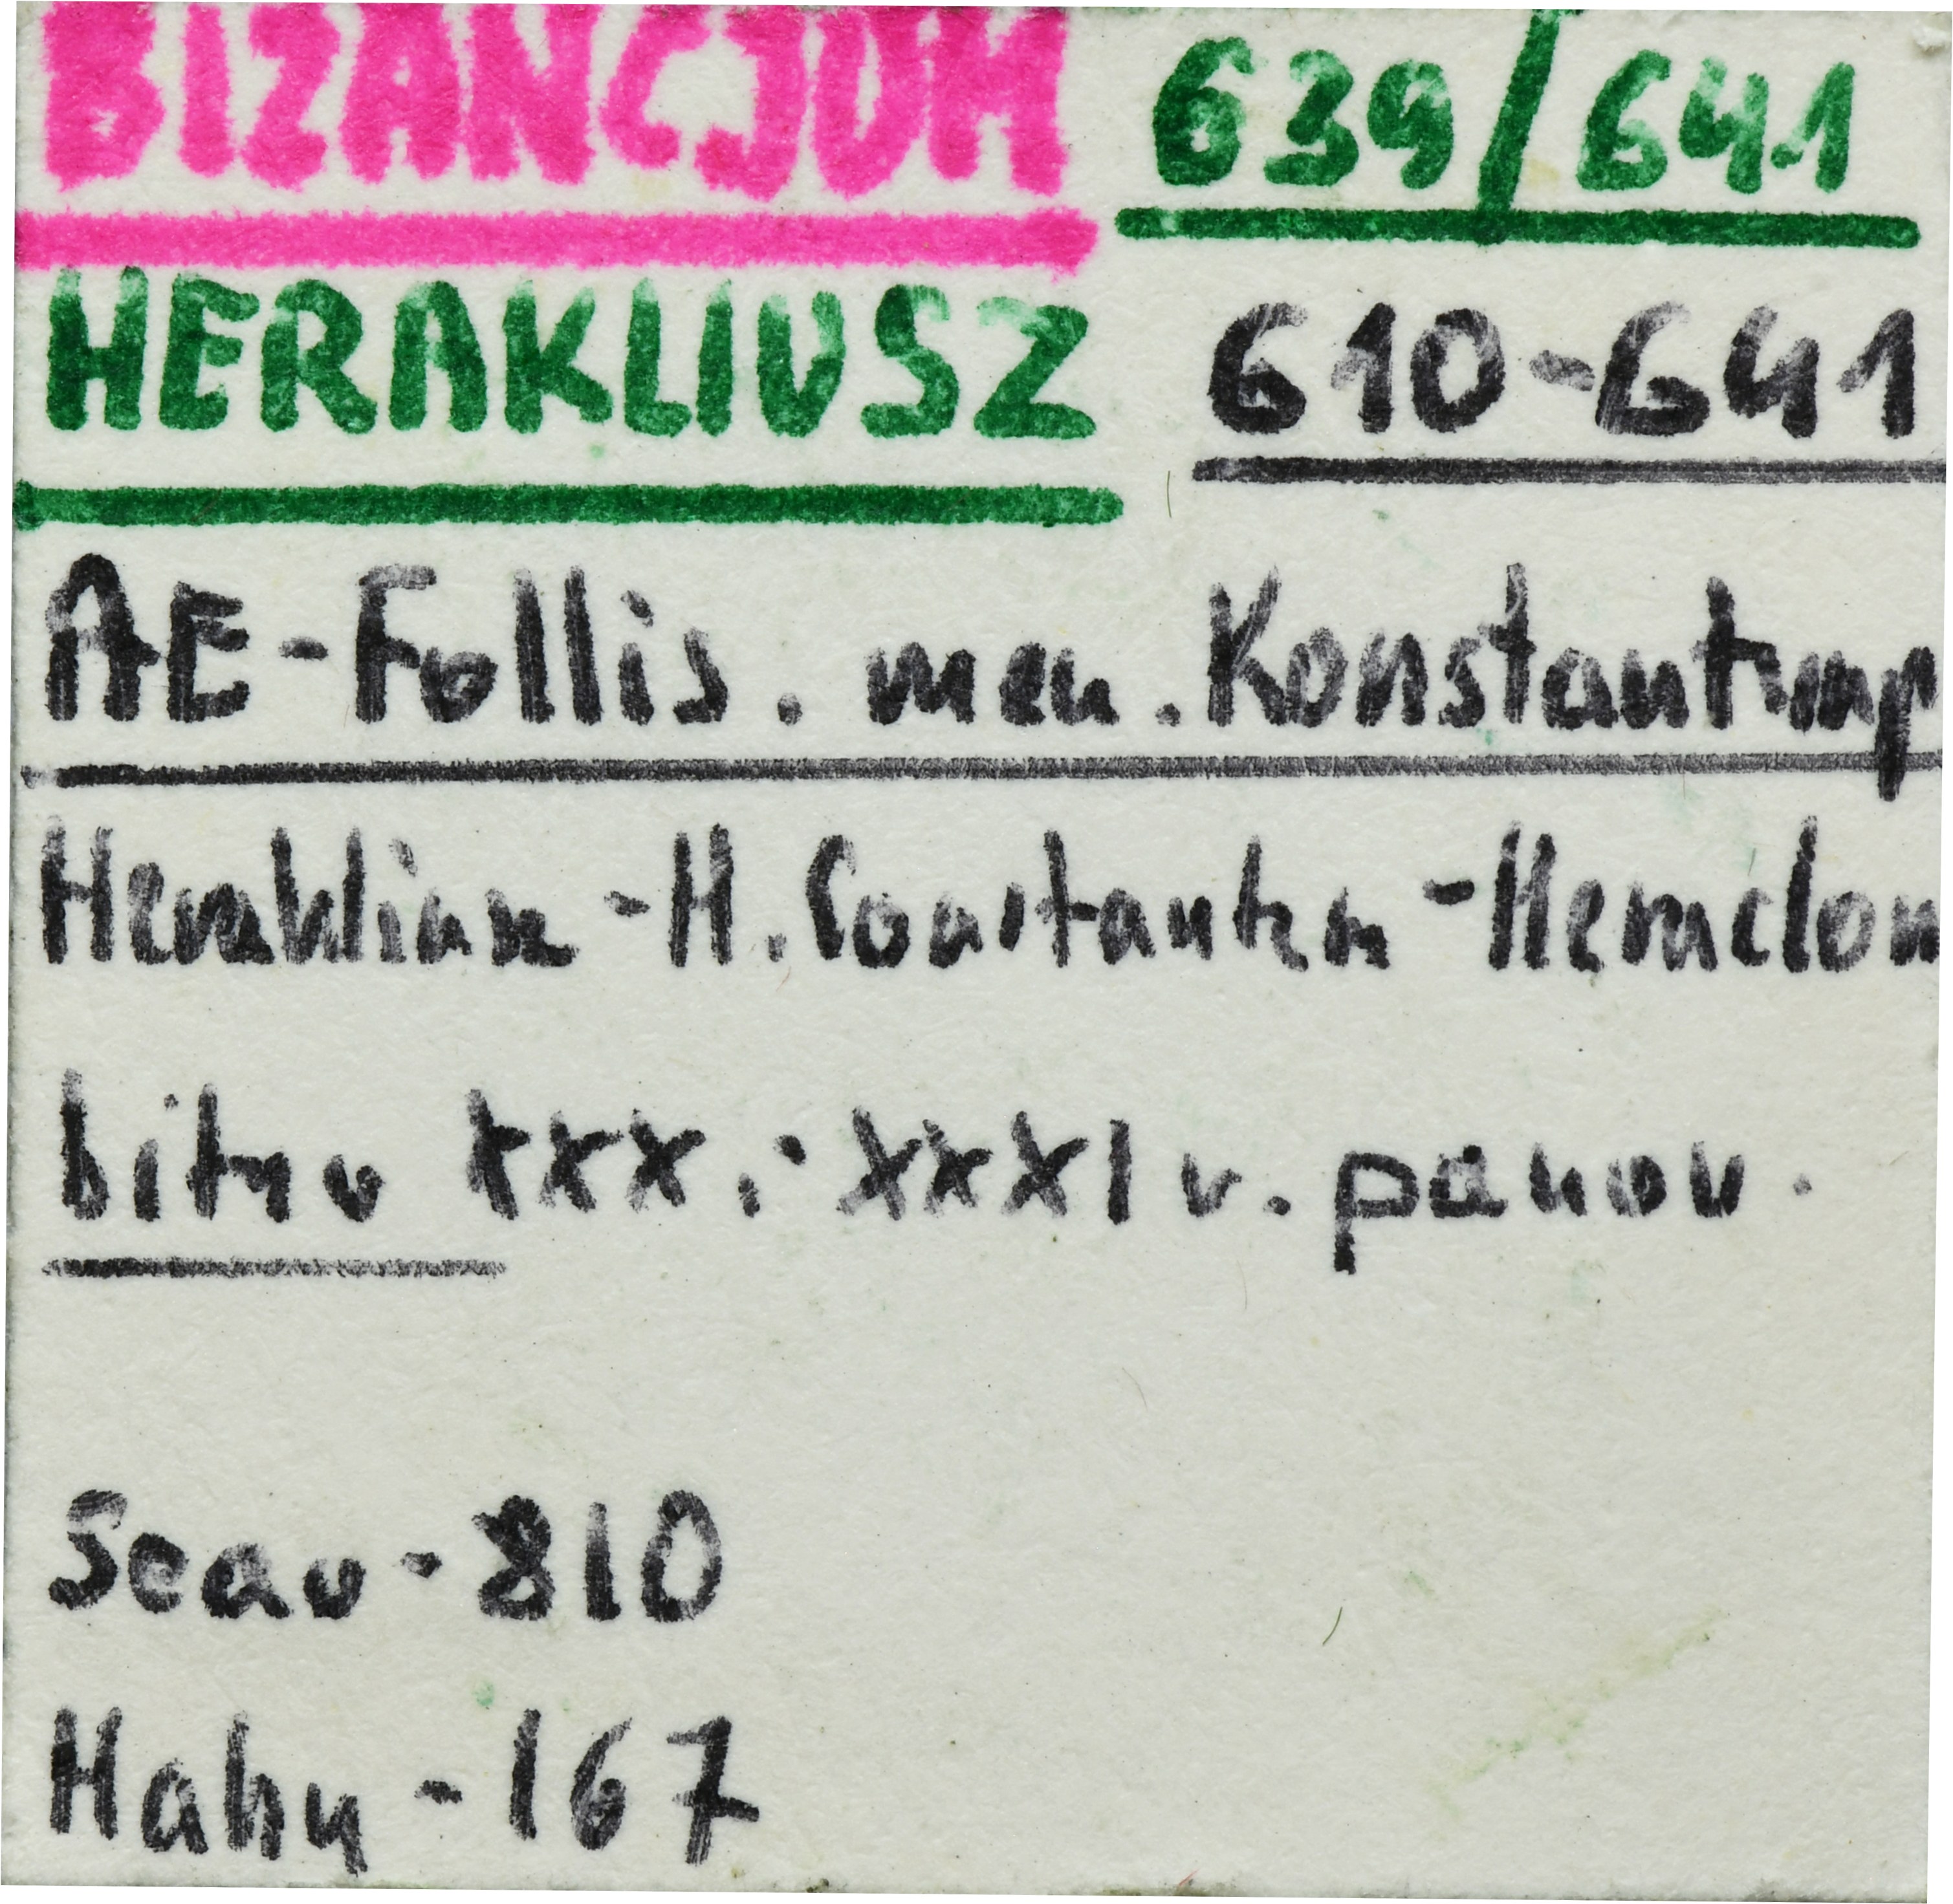 BIZANCJUM 639/641
HERAKLIUSZ 610-641
AE-Follis. men. Konstantinop
Heraklian - H. Constantin - Heraclon
bito w XXX i XXXI r. panow.
Sear - 810
Hahn - 167